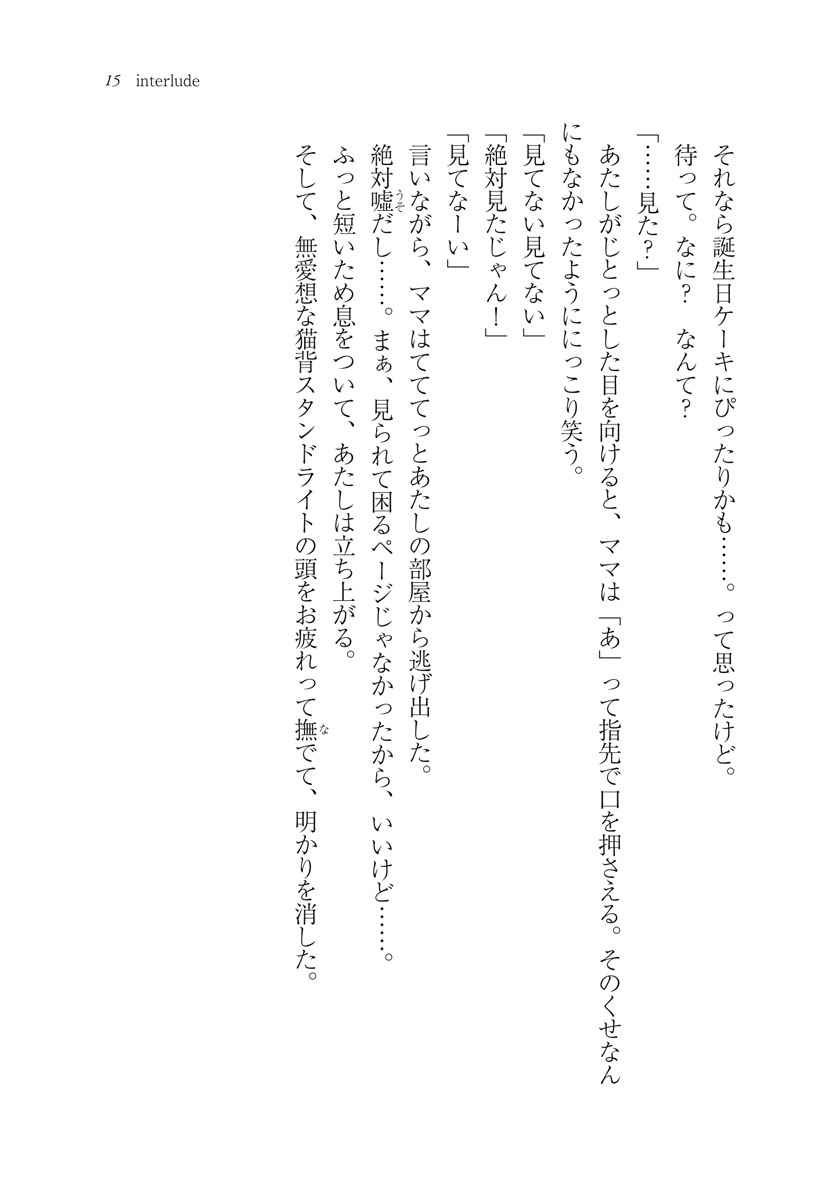 15 interlude
それなら誕生日ケーキにぴったりかも……。って思ったけど。
待って。なに？　なんて？
「……見た？」
あたしがじとっとした目を向けると、ママは「あ」って指先で口を押さえる。そのくせなん
にもなかったようににっこり笑う。
「見てない見てない」
「絶対見たじゃん！」
「見てなーい」
言いながら、ママはてててっとあたしの部屋から逃げ出した。
絶対嘘だし……。まぁ、見られて困るページじゃなかったから、いいけど……。
ふっと短いため息をついて、あたしは立ち上がる。
そして、無愛想な猫背スタンドライトの頭をお疲れって撫でて、明かりを消した。